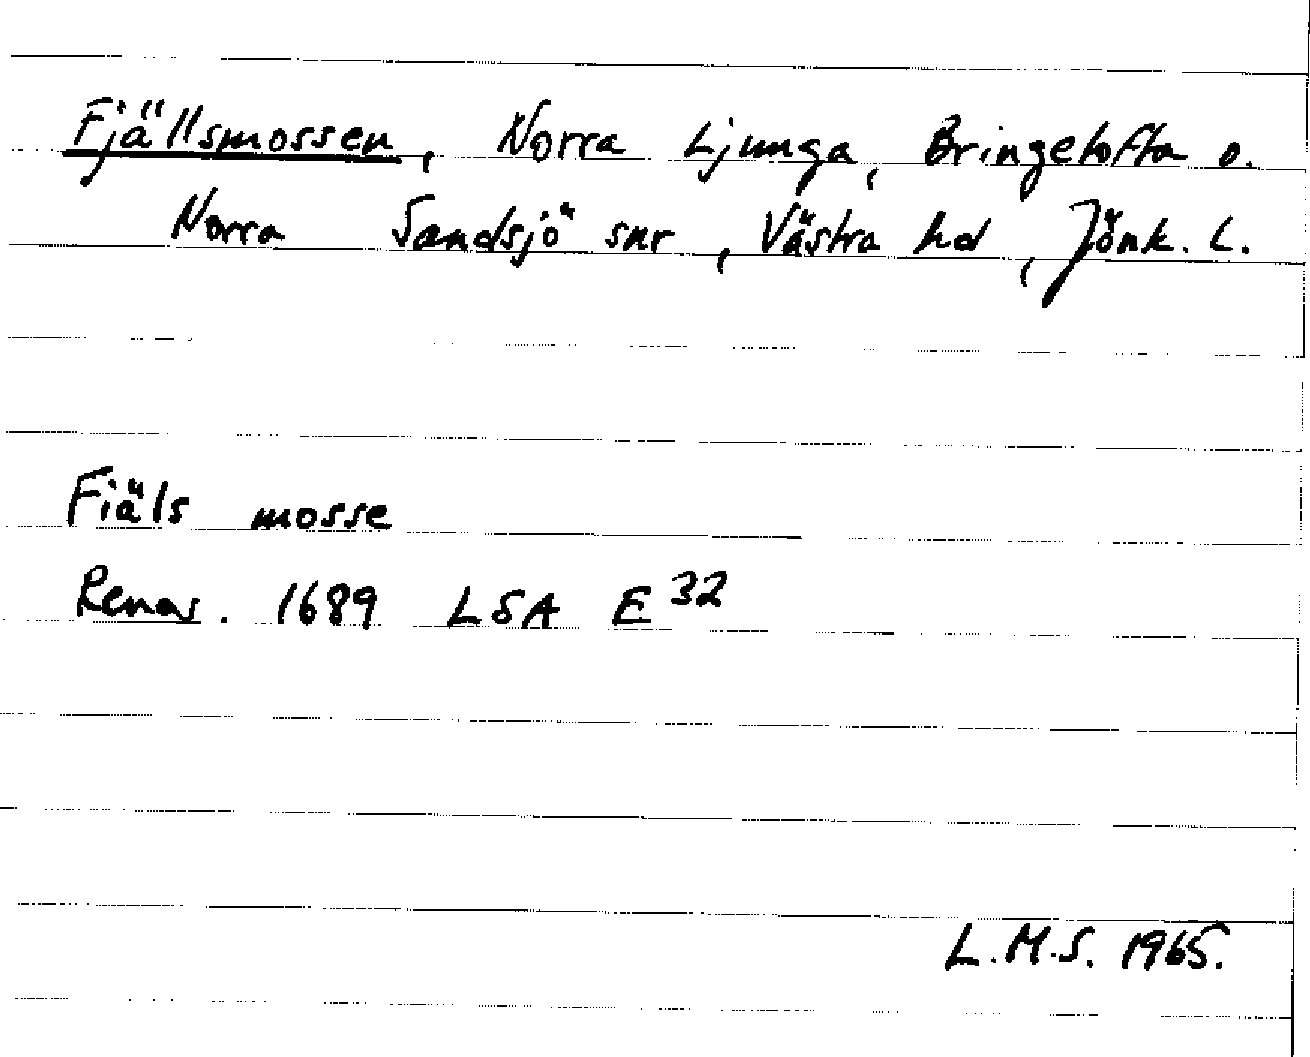 Fjällsmossen, Norra Ljunga, Bringetofta o.
Norra Sandsjö snr, Västra hd, Jönk. L.
Fiäls mosse
Renov. 1689 LSA E 32
L.M.S. 1965.